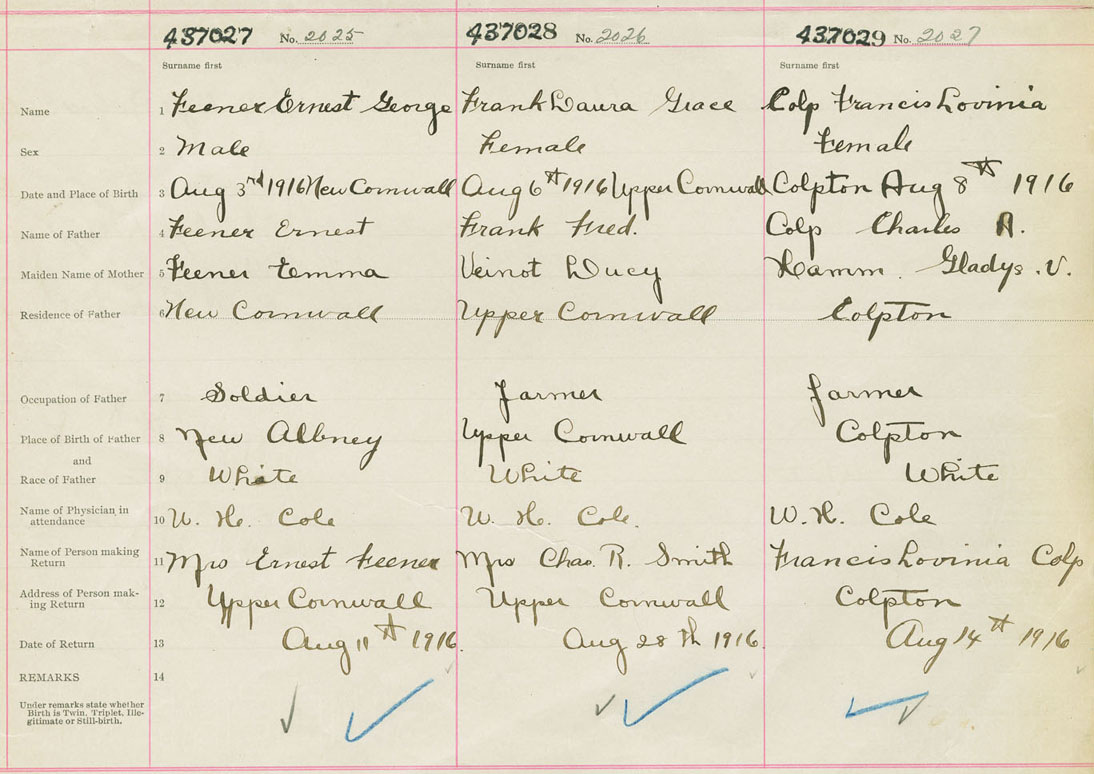 437027 No. 2025 437028 No. 2026 437029 No. 2027
Surname first Surname first Surname first
Name 1 Feener Ernest George Frank Laura Grace Colp Francis Lovinia
Sex 2 Male Female Female
Date and Place of Birth 3 Aug 3rd 1916 New Cornwall Aug 6th 1916 Upper Cornwall Colpton Aug 8th 1916
Name of Father 4 Feener Ernest Frank Fred. Colp Charles A.
Maiden Name of Mother 5 Feener Emma Veinot Lucy Hamm. Gladys. V.
Residence of Father 6 New Cornwall Upper Cornwall Colpton
Occupation of Father 7 Soldier Farmer Farmer
Place of Birth of Father 8 New Albney Upper Cornwall Colpton
and
Race of Father 9 White White White
Name of Physician in
attendance 10 W. H. Cole W. H. Cole. W. H. Cole
Name of Person making
Return 11 Mrs Ernest Feener Mrs Chas. R. Smith Francis Lovinia Colp
Address of Person mak-
ing Return 12 Upper Cornwall Upper Cornwall Colpton
Date of Return 13 Aug 11th 1916 Aug 28th 1916 Aug 14th 1916
REMARKS 14
Under remarks state whether
Birth is Twin, Triplet, Ille-
gitimate or Still-birth.